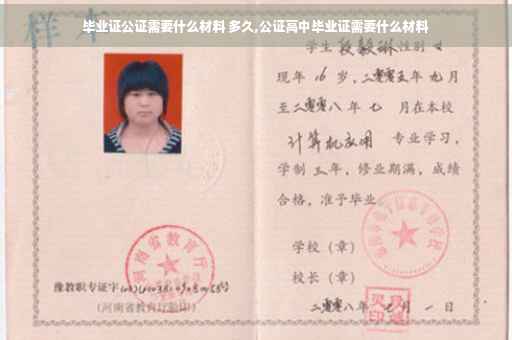 毕业证公证需要什么材料 多久,公证高中毕业证需要什么材料
样本
学生 段毅琳 性别 女
现年 16 岁，二零零五年 九 月
至二零零八年 七 月在本校
计算机应用 专业学习，
学制 三 年，修业期满，成绩
合格，准予毕业
学校（章）
校长（章）
二零零八年 七 月 一 日
河南省教育厅
豫教职专证字
(河南省教育厅验印)